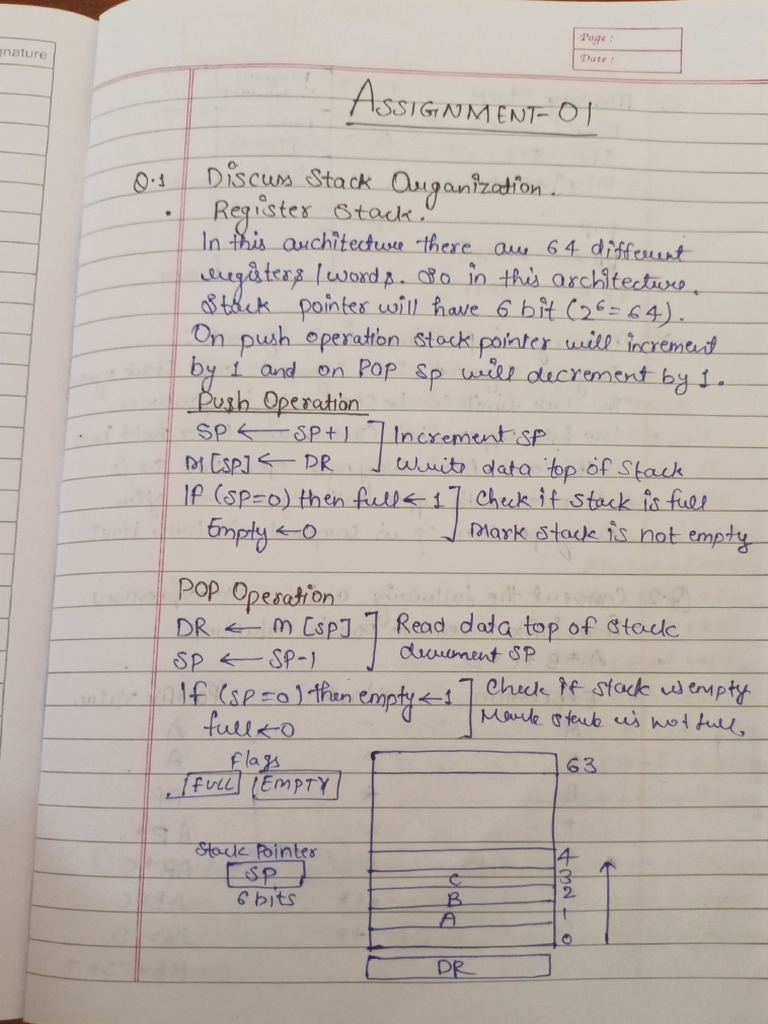 gnature
Page :
Date :
ASSIGNMENT-01
Q.1 Discuss Stack Organization.
• Register Stack.
In this architecture there are 64 different
registers/words. So in this architecture.
Stack pointer will have 6 bit (2⁶=64).
On push operation stack pointer will increment
by 1 and on POP SP will decrement by 1.
Push Operation
SP ← SP+1 ] Increment SP
M[SP] ← DR ] Write data top of Stack
If (SP=0) then full ← 1 ] Check if stack is full
Empty ← 0 ] Mark stack is not empty
POP Operation
DR ← M[SP] ] Read data top of stack
SP ← SP-1 ] decrement SP
If (SP=0) then empty ← 1 ] Check if stack is empty
full ← 0 ] Mark stack is not full.
Flags
FULL EMPTY
63
Stack Pointer
SP
6 bits
4
C 3
B 2
A 1
0
DR